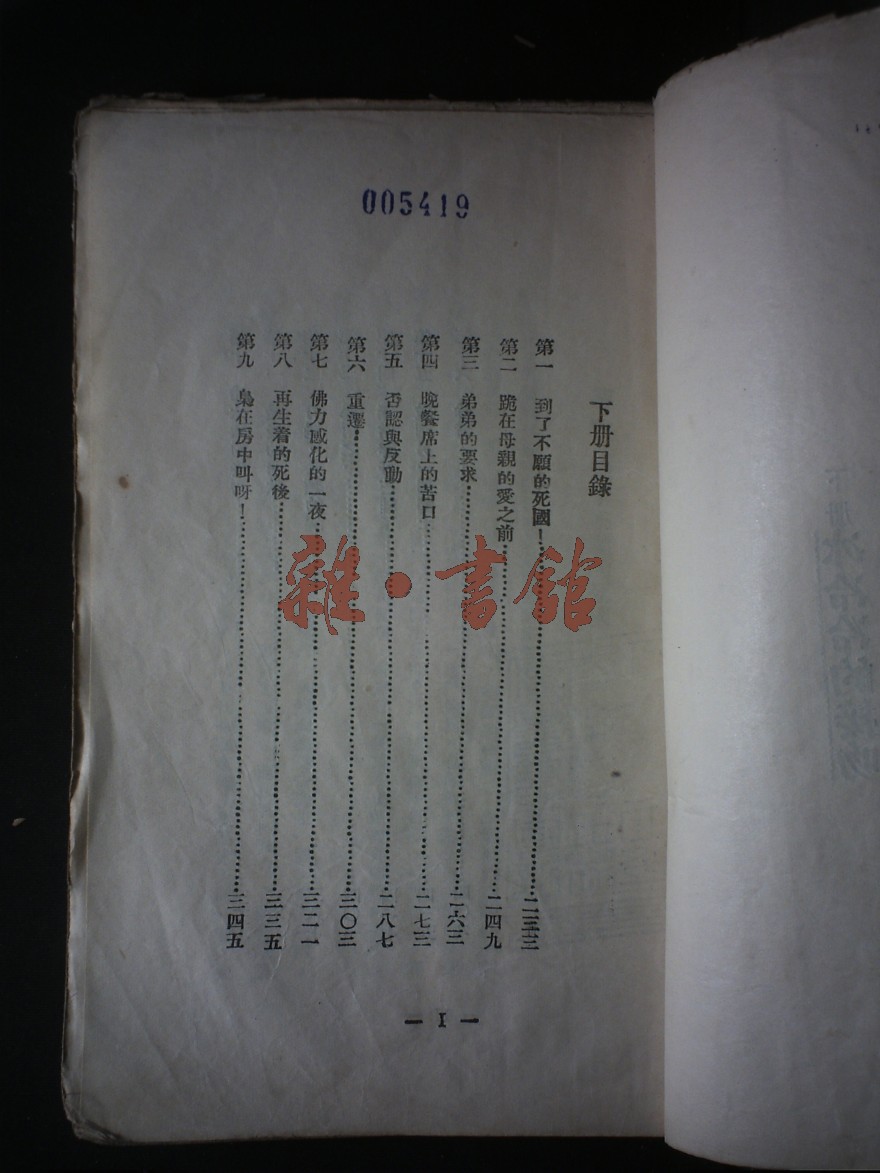 005419
下册目錄
第一 到了不願的死國！……二三三
第二 跪在母親的愛之前……二四九
第三 弟弟的要求……二六三
第四 晚餐席上的苦口……二七三
第五 否認與反動……二八七
第六 重遷……三〇三
第七 佛力感化的一夜……三二一
第八 再生着的死後……三三五
第九 梟在房中叫呀！……三四五
— I —
雜·書館